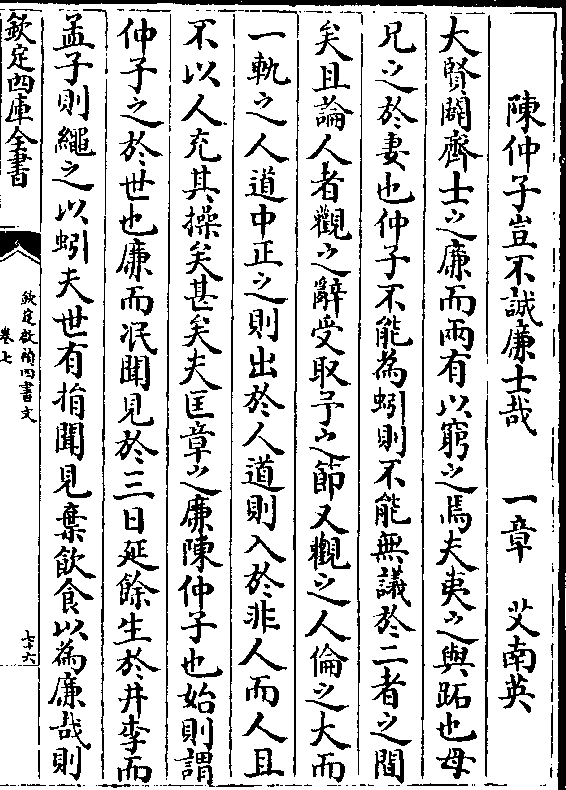 陳仲子豈不誠廉士哉　一章　艾南英
大賢闢齊士之廉而兩有以窮之焉夫夷之與跖也母
兄之於妻也仲子不能為蚓則不能無議於二者之間
矣且論人者觀之辭受取予之節又觀之人倫之大而
一軌之人道中正之則出於人道則入於非人而人且
不以人充其操矣甚矣夫匡章之廉陳仲子也始則謂
仲子之於世也廉而泯聞見於三日延餘生於井李而
孟子則繩之以蚓夫世有捐聞見棄飲食以為廉哉則
欽定四庫全書
欽定啟禎四書文
卷七
七十六